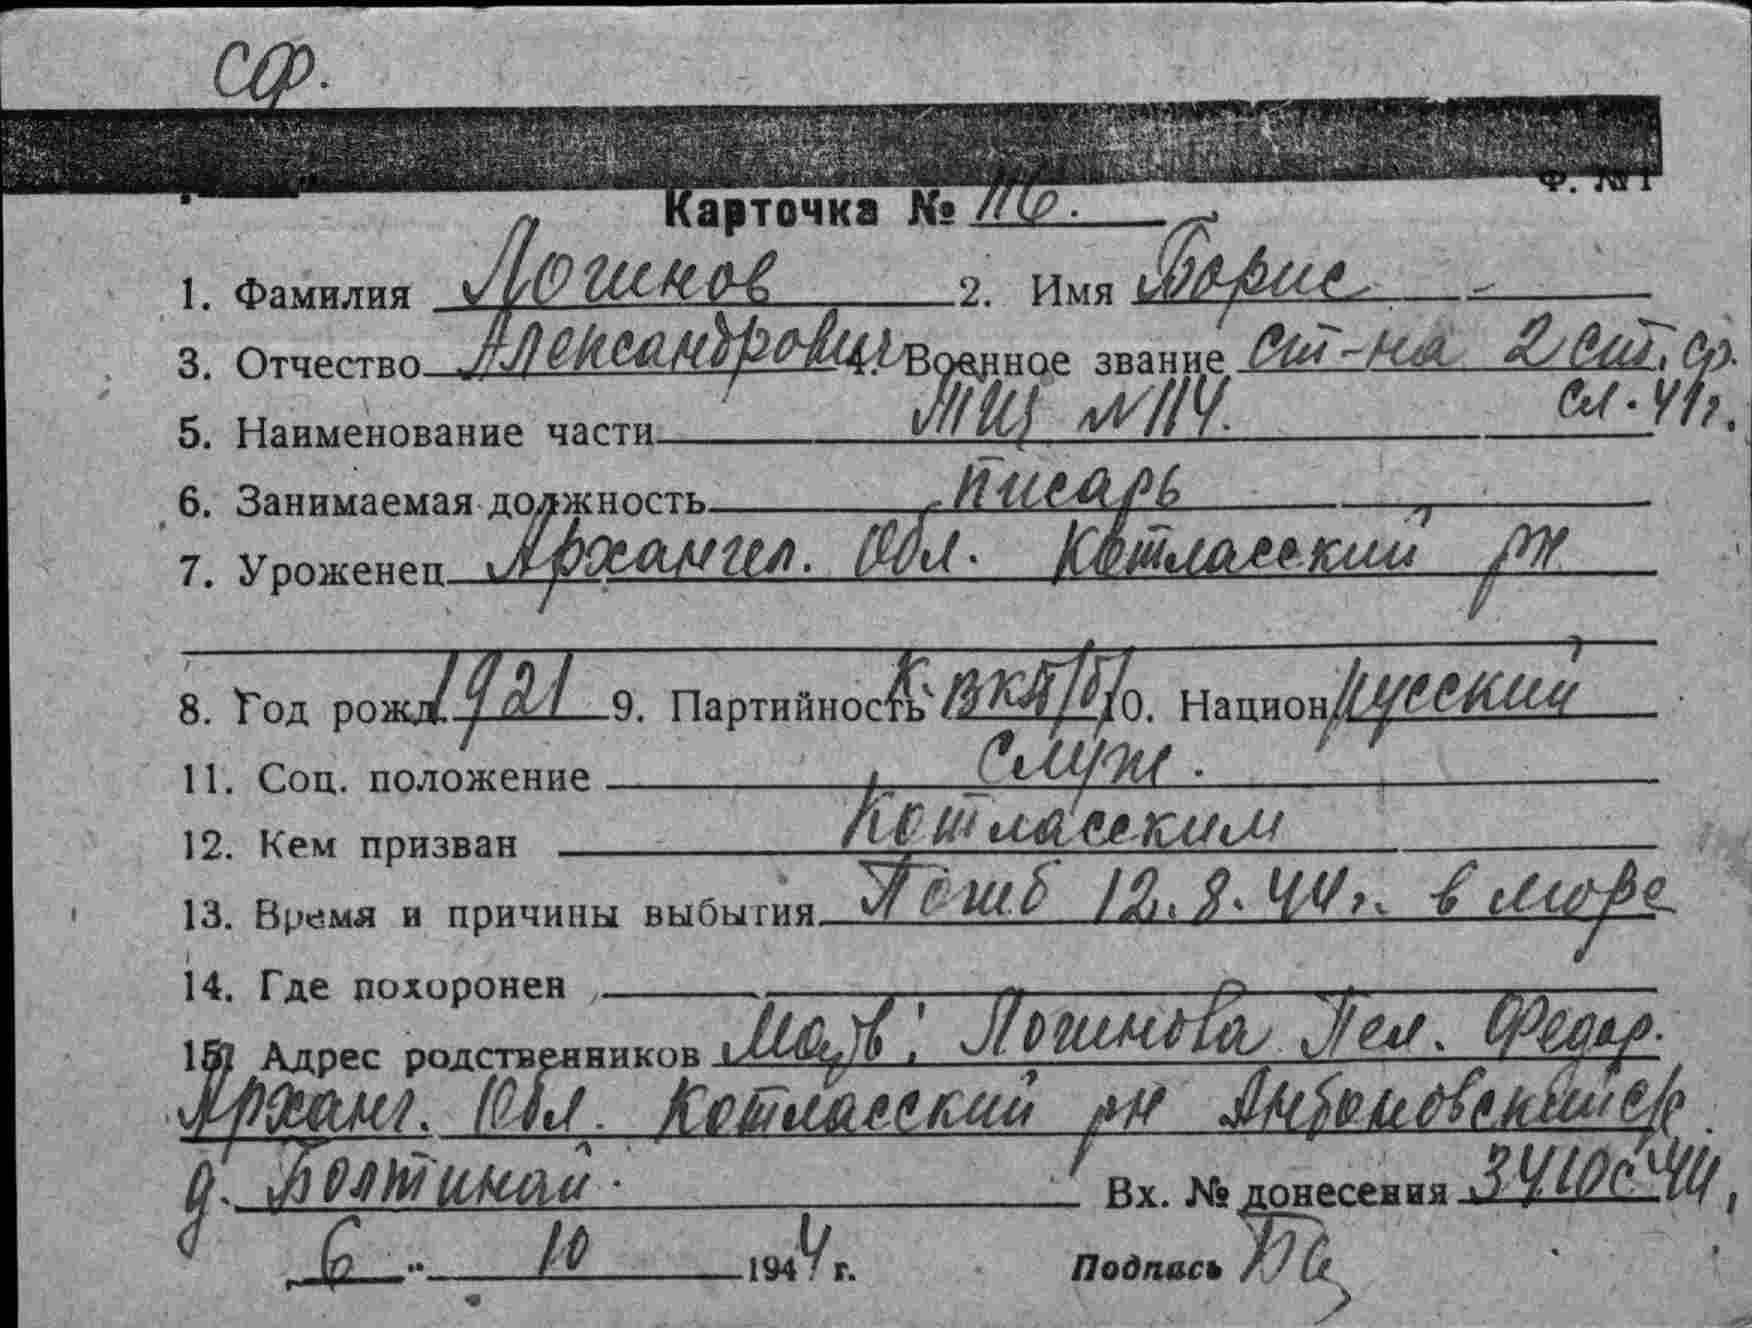 СФ.
Ф. №1
Карточка № 116.
1. Фамилия Логинов 2. Имя Борис
3. Отчество Александрович 4. Военное звание ст-на 2 ст. ср.
сл. 41 г.
5. Наименование части ТЩ №114.
6. Занимаемая должность писарь
7. Уроженец Архангел. Обл. Котласский рн
8. Год рожд. 1921 9. Партийность К. ВКП/б/ 10. Национ. русский
11. Соц. положение Служ.
12. Кем призван Котласским
13. Время и причины выбытия Погиб 12.8.44 г. в море
14. Где похоронен
15. Адрес родственников Мать: Логинова Пел. Федор.
Арханг. Обл. Котласский рн с/с
д. Вх. № донесения
6 " 10 1944 г. Подпись